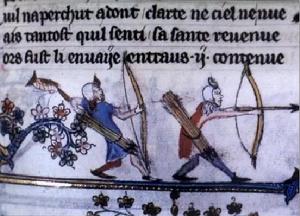 uil naperchut adont clarte ne ciel ne nue
ais tantost quil senti sa sante reuenue
fust li enuaije entraus ij contenue